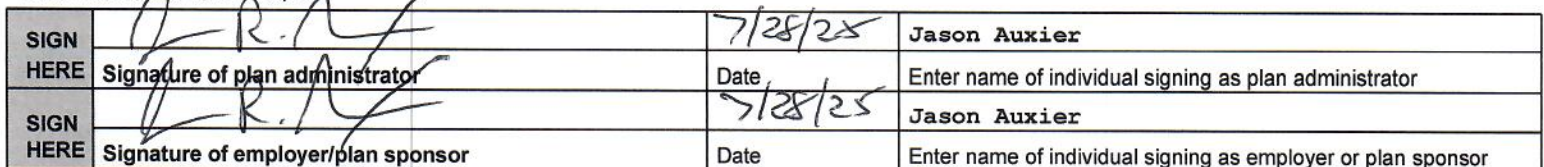 SIGN HERE 7/28/25 Jason Auxier
Signature of plan administrator Date Enter name of individual signing as plan administrator
SIGN HERE 7/28/25 Jason Auxier
Signature of employer/plan sponsor Date Enter name of individual signing as employer or plan sponsor